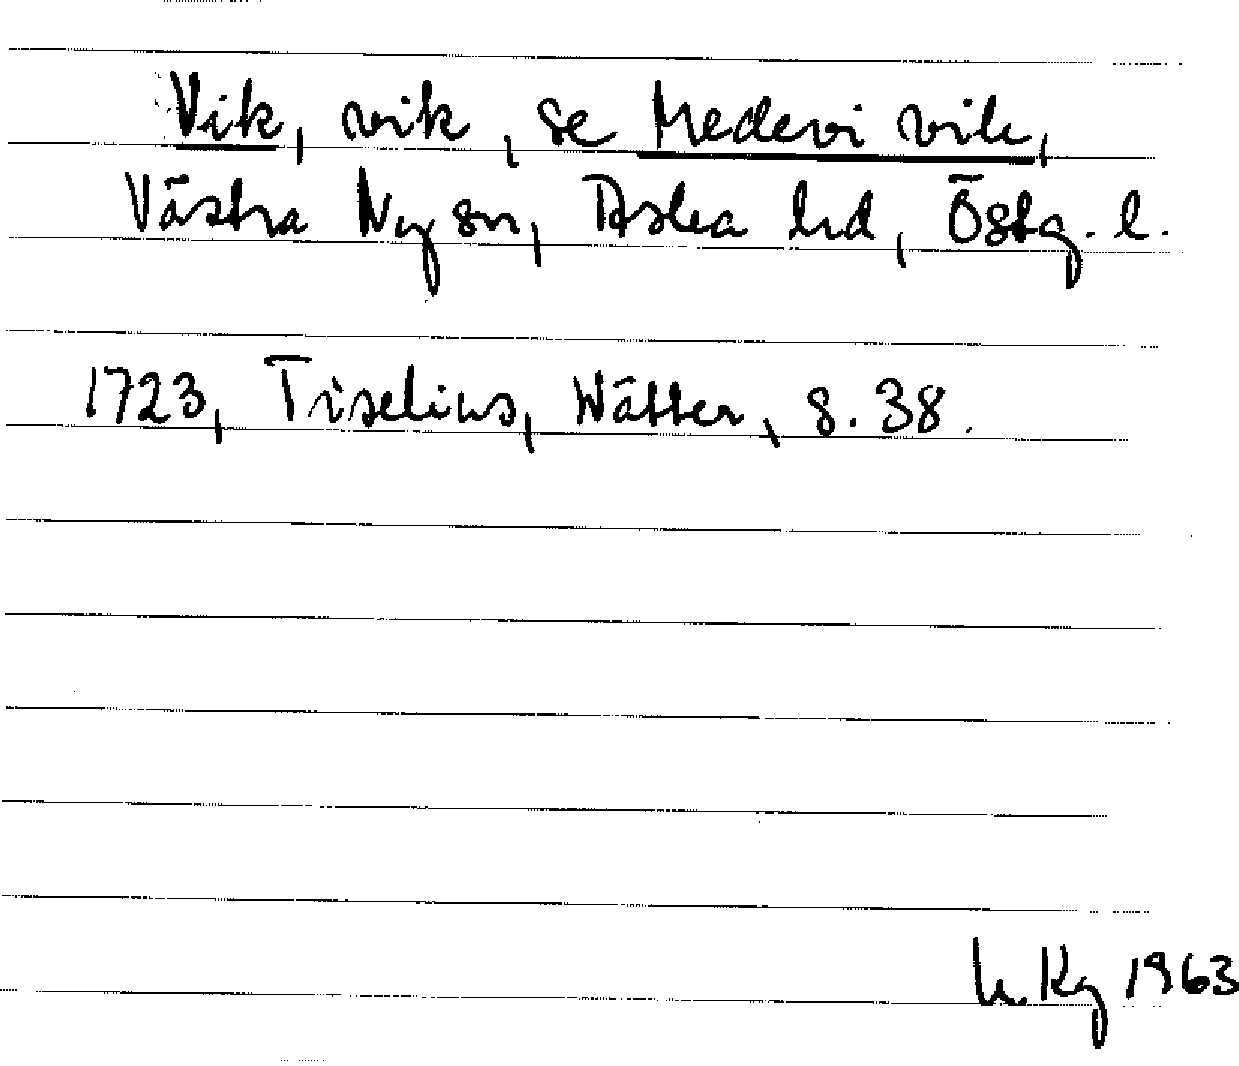 Vik, vik, se Medevi vik,
Västra Ny sn, Aska hd, Östg. l.
1723, Tiselius, Wätter, s. 38.
Kg 1963